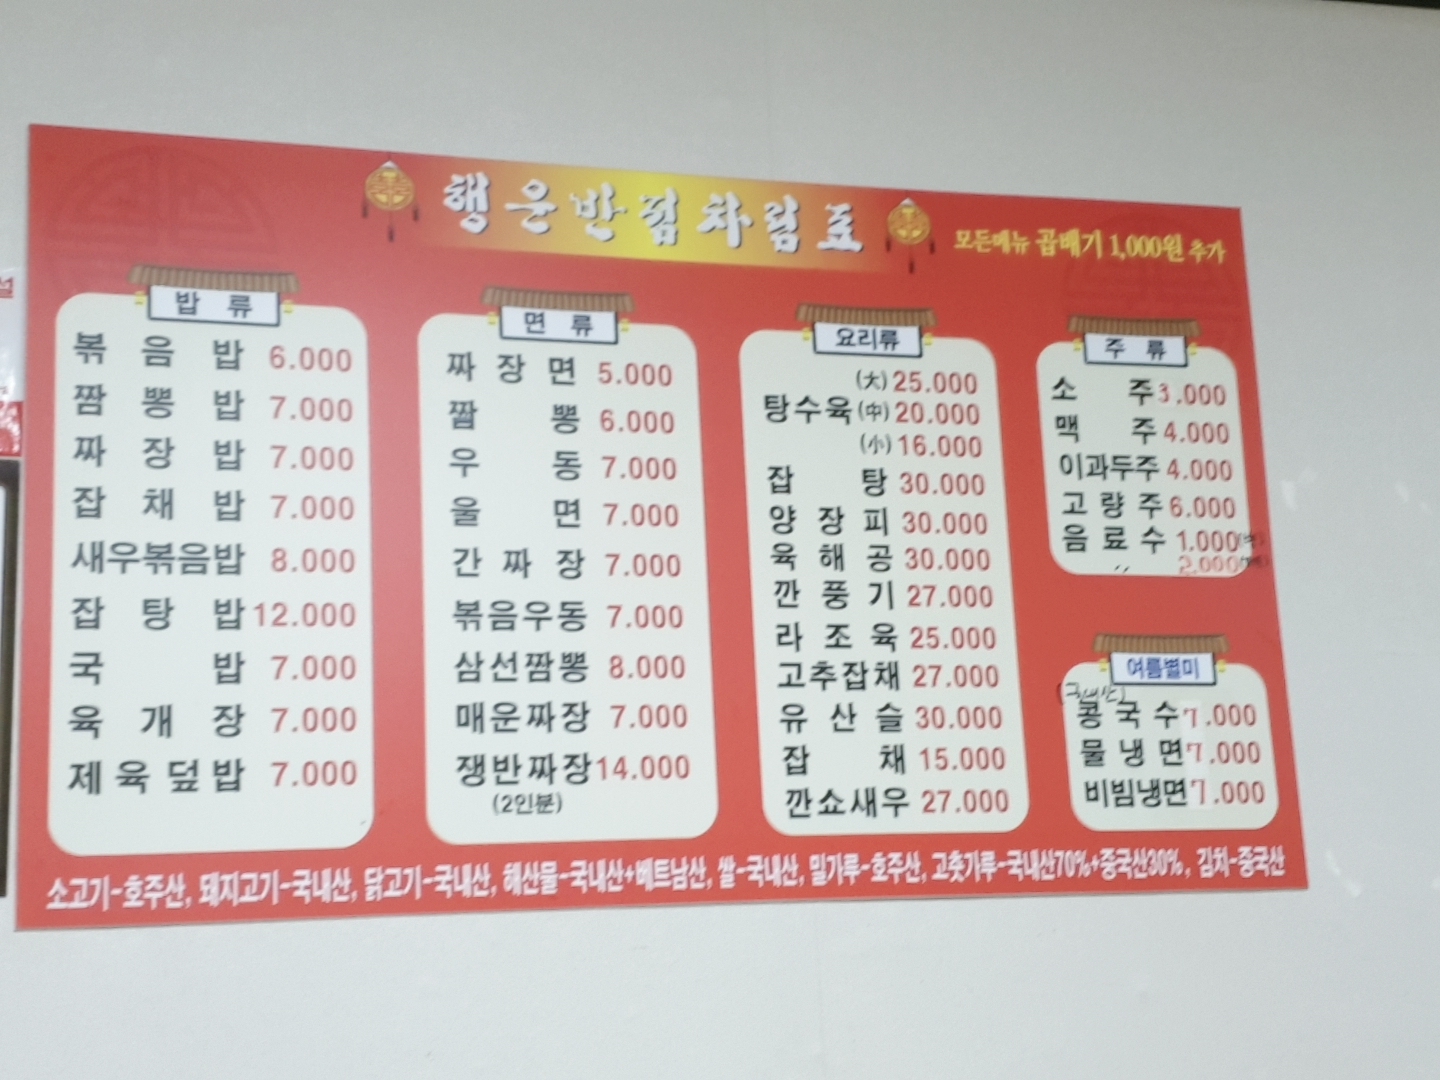 행운반점차림표
모든메뉴 곱배기 1,000원 추가
밥 류
볶 음 밥 6.000
짬 뽕 밥 7.000
짜 장 밥 7.000
잡 채 밥 7.000
새우볶음밥 8.000
잡 탕 밥 12.000
국 밥 7.000
육 개 장 7.000
제육덮밥 7.000
면 류
짜 장 면 5.000
짬 뽕 6.000
우 동 7.000
울 면 7.000
간 짜 장 7.000
볶음우동 7.000
삼선짬뽕 8.000
매운짜장 7.000
쟁반짜장 14.000
(2인분)
요리류
(大) 25.000
탕수육 (中) 20.000
(小) 16.000
잡 탕 30.000
양 장 피 30.000
육 해 공 30.000
깐 풍 기 27.000
라 조 육 25.000
고추잡채 27.000
유 산 슬 30.000
잡 채 15.000
깐쇼새우 27.000
주 류
소 주 3.000
맥 주 4.000
이과두주 4.000
고 량 주 6.000
음 료 수 1.000
〃 2.000
여름별미
(국내산)
콩 국 수 7.000
물 냉 면 7.000
비빔냉면 7.000
소고기-호주산, 돼지고기-국내산, 닭고기-국내산, 해산물-국내산+베트남산, 쌀-국내산, 밀가루-호주산, 고춧가루-국내산70%+중국산30%, 김치-중국산